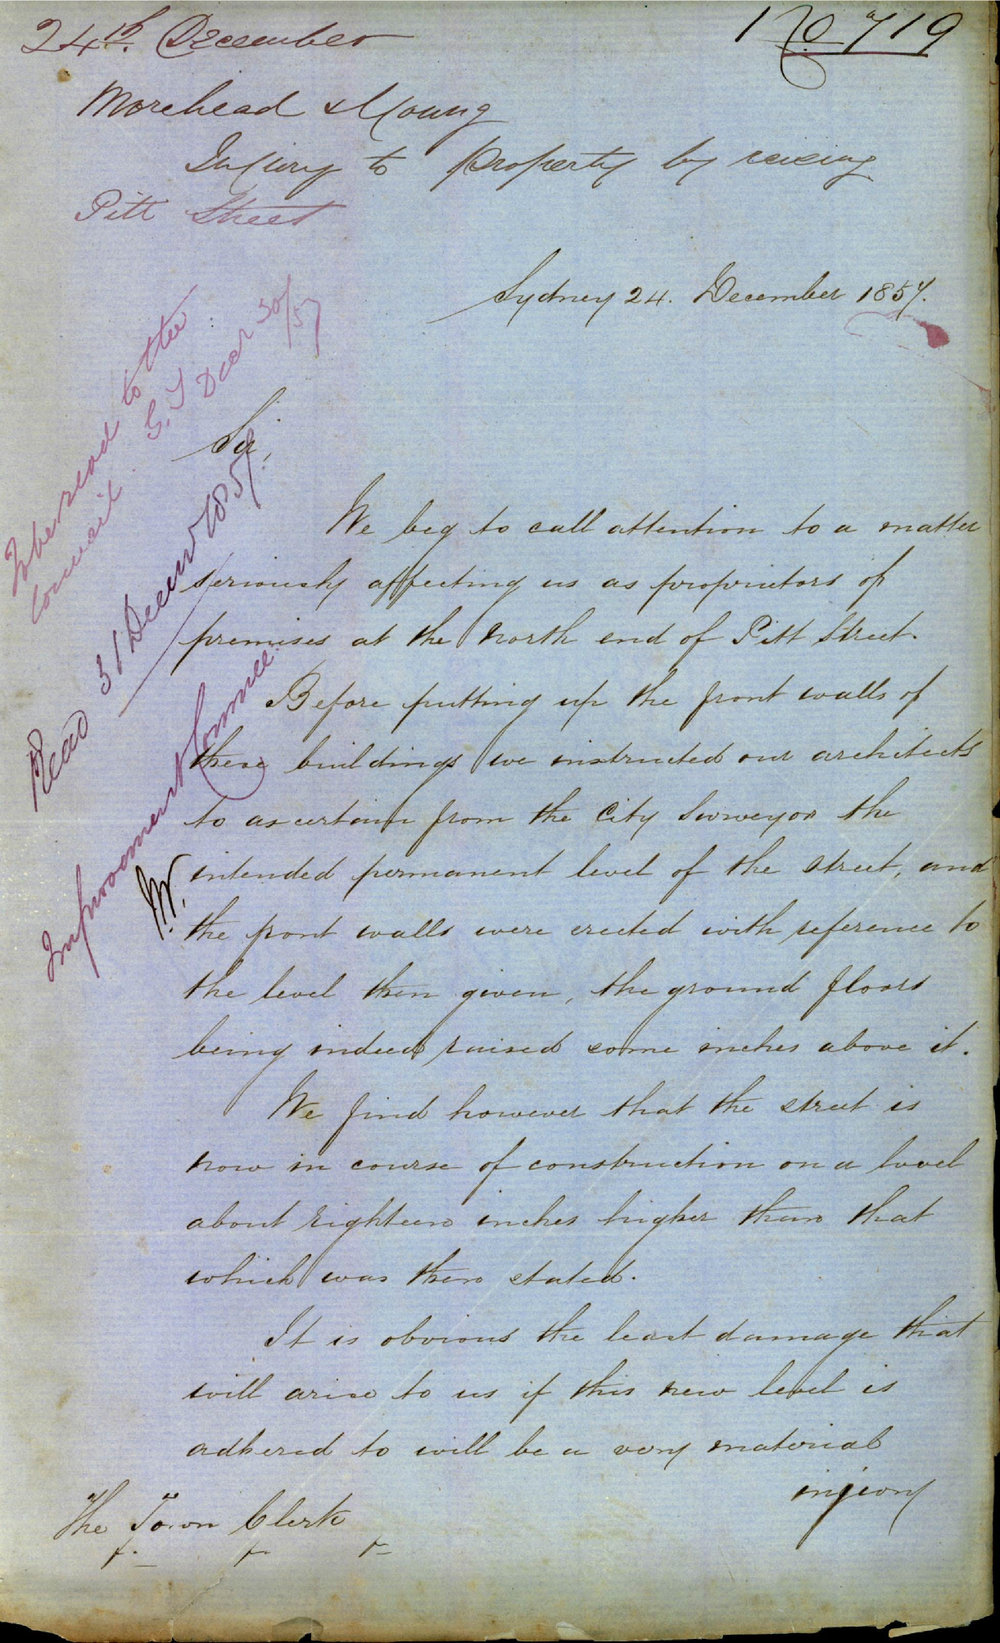 24th. December
No 719
Morehead & Young
Injury to property by raising
Pitt Street
Sydney 24. December 1857.
To be read to the
Council G. T Decr 30/57
Read 31 Decemr 1857
Improvement Commee.
Sir,
We beg to call attention to a matter
seriously affecting us as proprietors of
premises at the North end of Pitt Street.
Before putting up the front walls of
these buildings we instructed our architects
to ascertain from the City Surveyor the
intended permanent level of the street, and
the front walls were erected with reference to
the level then given, the ground floors
being indeed raised some inches above it.
We find however that the street is
now in course of construction on a level
about eighteen inches higher than that
which was then stated.
It is obvious the least damage that
will arise to us if this new level is
adhered to will be a very material
injury
The Town Clerk